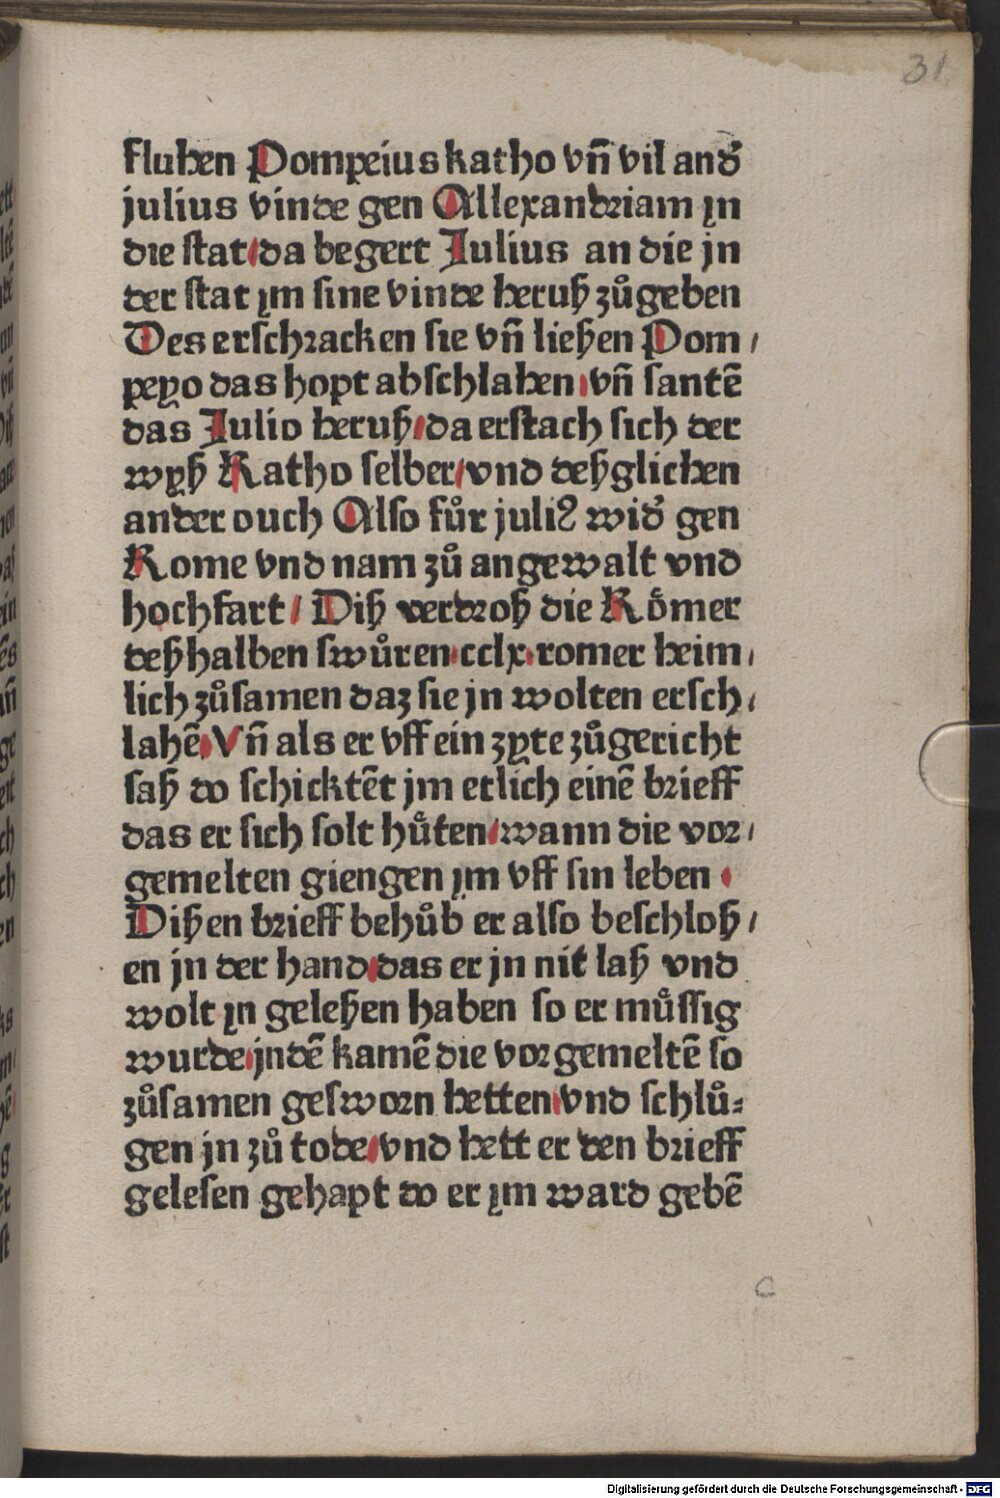 31
fluhen Pompeius katho vn̄ vil andˀ
julius vinde gen Allexandriam jn
die stat/da begert Julius an die jn
der stat jm sine vinde heruß zůgeben
Des erschracken sie vn̄ ließen Pom/
peyo das hopt abschlahen/vn̄ santē
das Julio heruß/da erstach sich der
wyß Katho selber/vnd deßglichen
ander ouch Also fůr juliꝰ widˀ gen
Rome vnd nam zů an gewalt vnd
hochfart/ Diß verdroß die Roͤmer
deßhalben swůren·cclx·romer heim/
lich zůsamen daz sie jn wolten ersch/
lahē/Vn̄ als er vff ein zyte zůgericht
saß do schicktēt jm etlich einē brieff
das er sich solt hůten/wann die vor/
gemelten giengen jm vff sin leben ·
Dißen brieff behůb er also beschloß/
en jn der hand/das er jn nit laß vnd
wolt jn geleßen haben so er můssig
wurde/jndē kamē die vorgemeltē so
zůsamen gesworn hetten/vnd schlů⸗
gen jn zů tode/vnd hett er den brieff
gelesen gehapt do er jm ward gebē
C
Digitalisierung gefördert durch die Deutsche Forschungsgemeinschaft - DFG